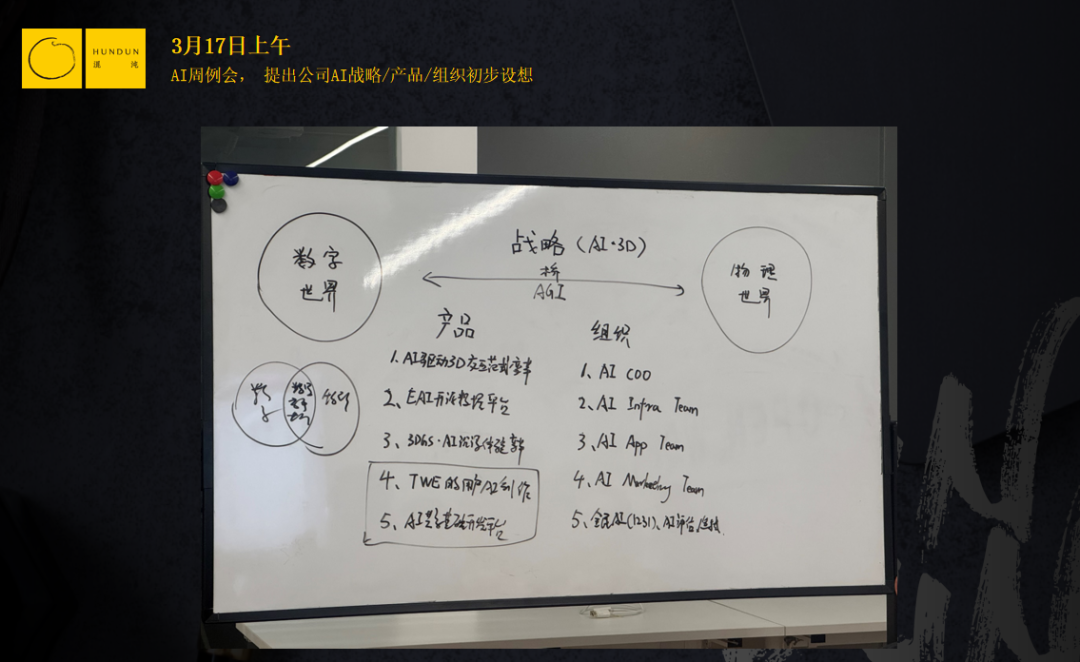 HUNDUN
混 沌
3月17日上午
AI周例会， 提出公司AI战略/产品/组织初步设想
数字
世界
战略（AI·3D）
桥
AGI
物理
世界
产品
1、AI驱动3D交互范式
2、EAI开放数据平台
3、3DGS·AI沉浸体验
4、TWE的用户AI创作
5、AI 开发平台
组织
1、AI COO
2、AI Infra Team
3、AI App Team
4、AI Marketing Team
5、全员AI(1231)、AI评估